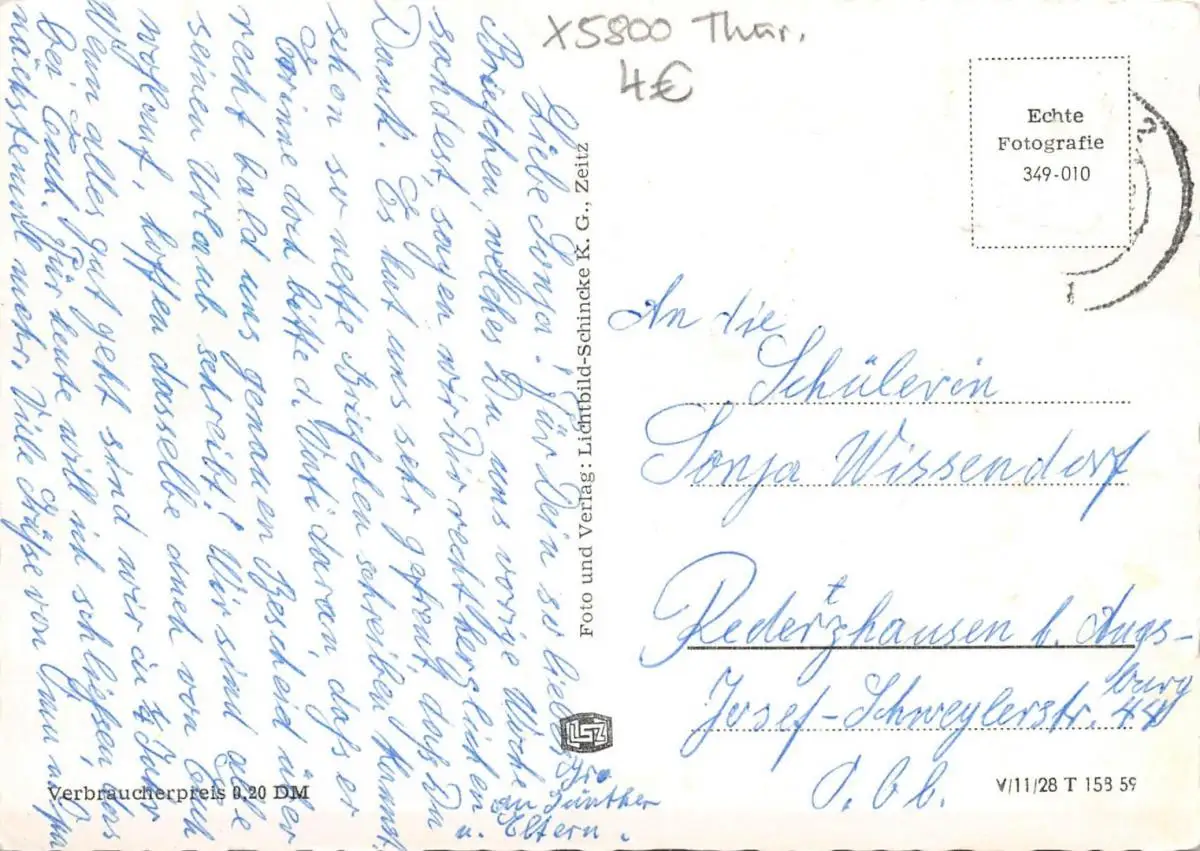 X5800 Thür.
4€
Liebe Sonja! Für Dein so liebes
Briefchen, welches Du uns vorige Woche
sandest, sagen wir Dir recht herzlichen
Dank. Es hat uns sehr gefreut, daß Du
schon so nette Briefchen schreiben kannst.
Erinne doch bitte d. Vati daran, daß er
recht bald uns genauen Bescheid über
seinen Urlaub schreibt! Wir sind alle
wohlauf, hoffen dasselbe auch von Euch
Wenn alles gut geht sind wir in Jahr
bei Euch. Für heute will ich schließen, das
nächstemal mehr. Viele Grüße von Omu u. Opa
Grü
an Günther
u. Eltern.
Foto und Verlag: Lichtbild-Schincke K. G., Zeitz
Verbraucherpreis 0,20 DM
Echte
Fotografie
349-010
An die
Schülerin
Sonja Wissendorf
Rederzhausen b. Augs-
burg
Josef-Schweylerstr. 44
O. bb.
V/11/28 T 158 59